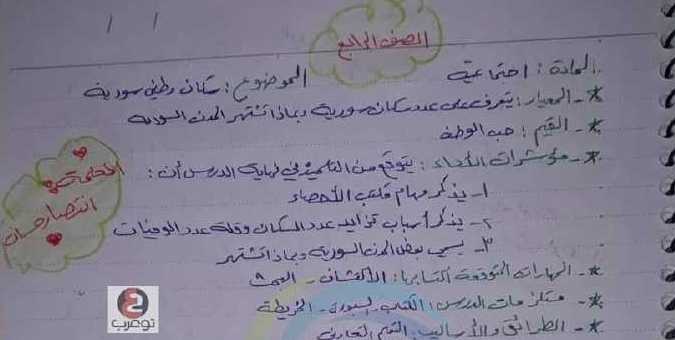 الصف الرابع
المادة: اجتماعية    الموضوع: سكان وطني سورية
* المعيار: يتعرف على عدد سكان سورية وبماذا تشتهر المدن السورية
* القيم: حب الوطن
* مؤشرات الأداء: يتوقع من التلميذ في نهاية الدرس أن:
١- يذكر مهام مكتب الأحصاء
٢- يذكر أسباب تزايد عدد السكان وقلة عدد الوفيات
٣- يسمي بعض المدن السورية وبماذا تشتهر
* المهارات المتوقعة اكتسابها: الأكتشاف - البحث
* مستلزمات الدرس: الكتاب - السبورة - الخريطة
* الطرائق والأساليب: التعلم التعاوني
المعلمة
انتصار
توعرب